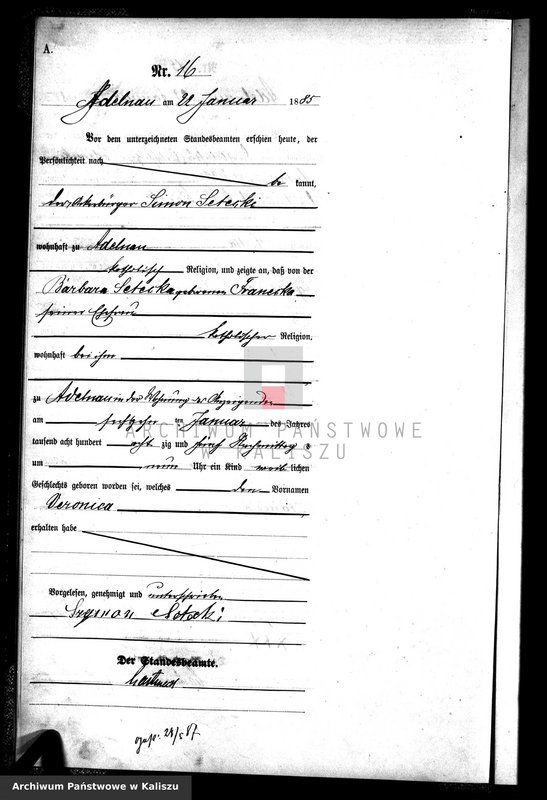 A.
Nr. 16
Adelnau am 22 Januar 1885
Vor dem unterzeichneten Standesbeamten erschien heute, der
Persönlichkeit nach
be kannt,
der Ackerbürger Simon Setecki
wohnhaft zu Adelnau
katholisch Religion, und zeigte an, daß von der
Barbara Setecka geborenen Franecka
seiner Ehefrau
katholischer Religion,
wohnhaft bei ihm
zu Adelnau in der Wohnung des Anzeigenden
am sechzehn ten Januar des Jahres
tausend acht hundert acht zig und fünf Nachmittag s
um neun Uhr ein Kind weib lichen
Geschlechts geboren worden sei, welches den Vornamen
Veronica
erhalten habe
Vorgelesen, genehmigt und unterschrieben
Szymon Setecki
Der Standesbeamte.
ARCHIWUM PAŃSTWOWE
W KALISZU
Archiwum Państwowe w Kaliszu